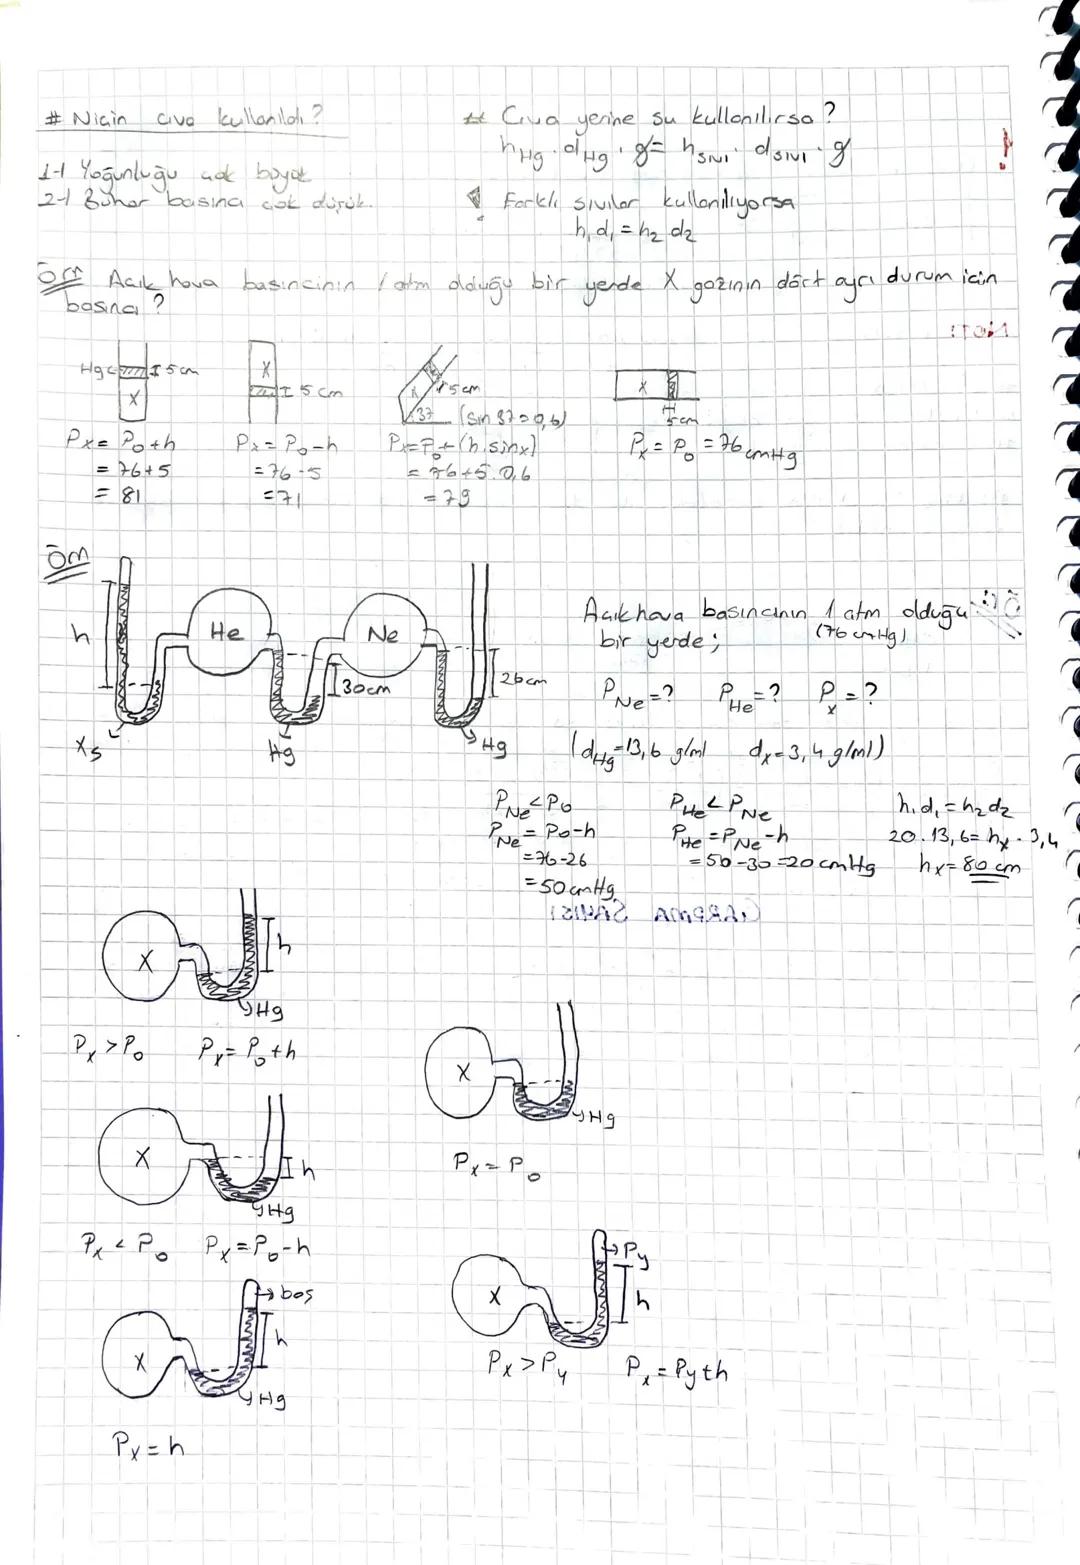 # Niçin civa kullanıldı?
1-) Yoğunluğu çok büyük
2-) Buhar basıncı çok düşük.
# Civa yerine su kullanılırsa?
hHg . dHg . g = hsıvı . dsıvı . g
Farklı sıvılar kullanılıyorsa
h₁d₁ = h₂d₂
!
Örn Açık hava basıncının 1 atm olduğu bir yerde X gazının dört ayrı durum için
basıncı?
Hg
5 cm
X
Px = P₀+h
= 76+5
= 81
X
5 cm
Px = P₀-h
= 76-5
= 71
X
5 cm
37
(sin 37=0,6)
Px = P₀+(h.sinx)
= 76+5.0,6
= 79
X
5 cm
Px = P₀ = 76 cmHg
Örn
h
He
Ne
30cm
26cm
Xs
Hg
Hg
Açık hava basıncının 1 atm olduğu
(76 cmHg)
bir yerde;
PNe=? PHe=? Px=?
(dHg=13,6 g/ml dx=3,4 g/ml)
PNe < P₀
PNe = P₀-h
= 76-26
= 50 cmHg
PHe < PNe
PHe = PNe-h
= 50-30=20 cmHg
h₁d₁ = h₂d₂
20.13,6 = hx.3,4
hx = 80 cm
X
h
Hg
Px > P₀ Px = P₀+h
X
Hg
Px = P₀
X
h
Hg
Px < P₀ Px = P₀-h
X
Py
h
Px > Py Px = Py+h
boş
X
h
Hg
Px = h